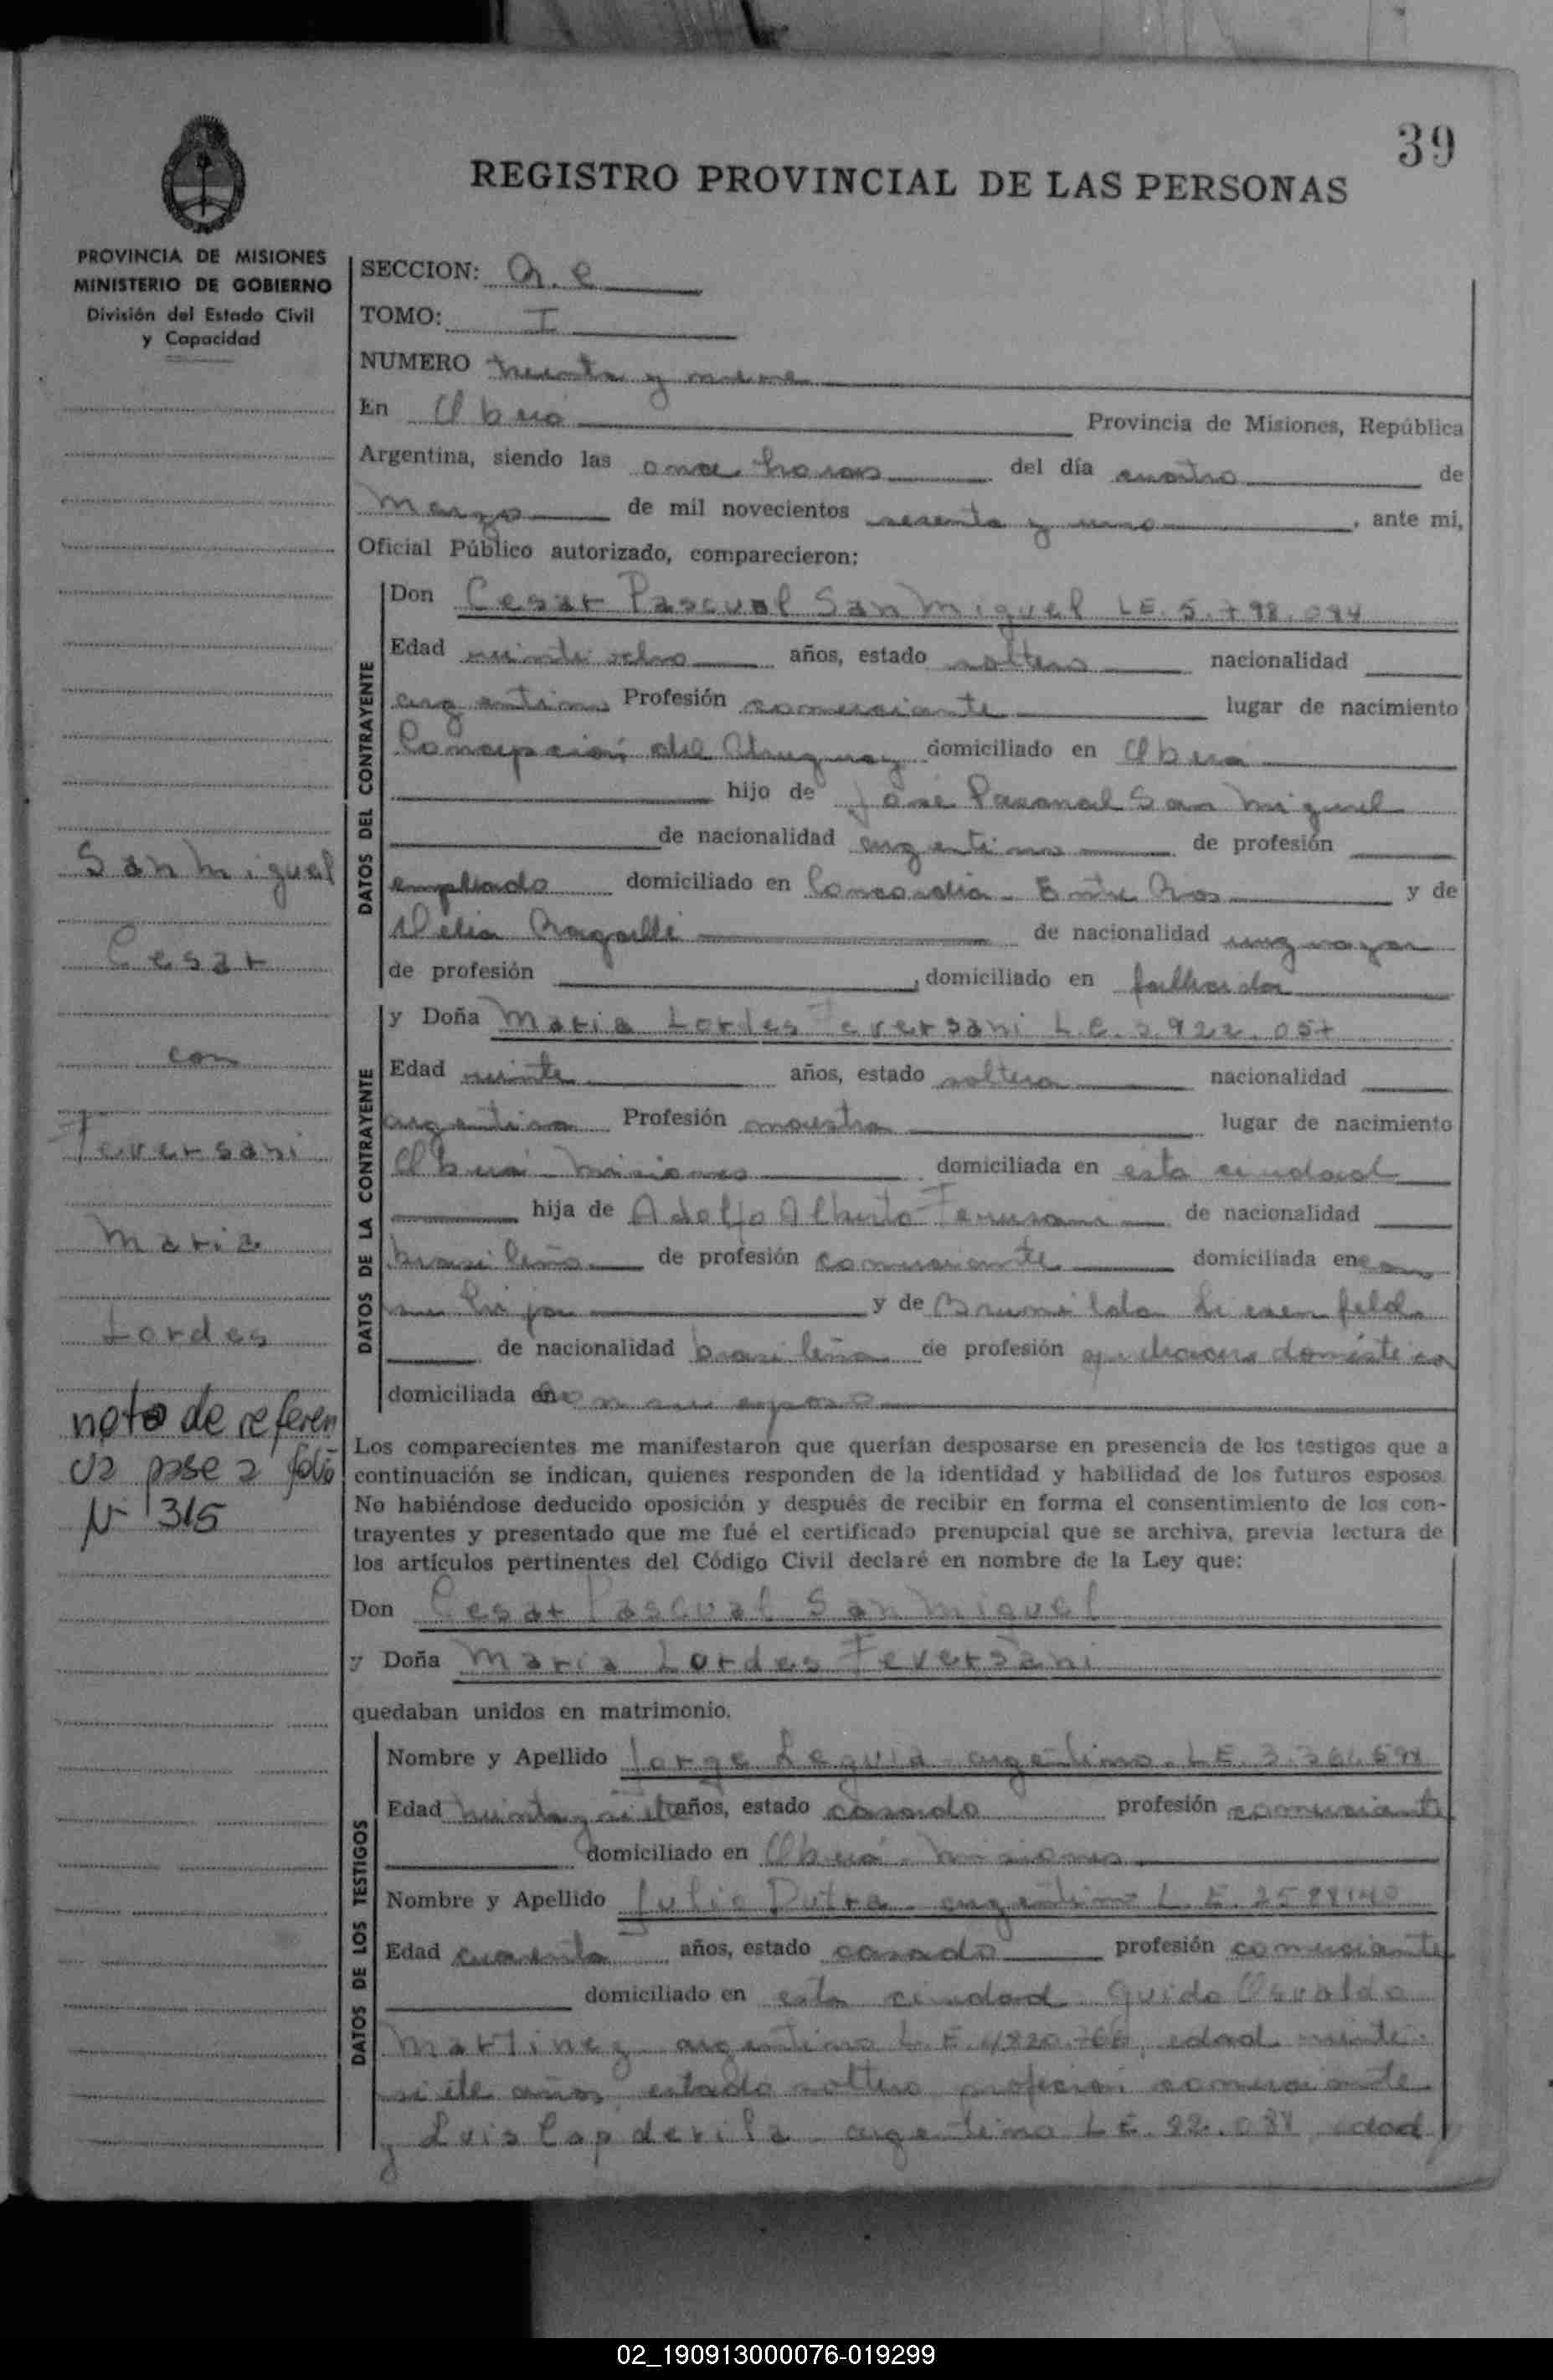 39
REGISTRO PROVINCIAL DE LAS PERSONAS
PROVINCIA DE MISIONES
MINISTERIO DE GOBIERNO
División del Estado Civil
y Capacidad
SECCION:
TOMO: I
NUMERO treinta y nueve
En Oberá Provincia de Misiones, República
Argentina, siendo las once horas del día cuatro de
Marzo de mil novecientos sesenta y uno, ante mi,
Oficial Público autorizado, comparecieron:
DATOS DEL CONTRAYENTE
Don Cesar Pascual San Miguel LE. 5.798.094
Edad veinte ocho años, estado soltero nacionalidad
argentino Profesión comerciante lugar de nacimiento
Concepción del Uruguay domiciliado en Oberá
hijo de José Pascual San Miguel
de nacionalidad argentino de profesión
empleado domiciliado en Concordia - Entre Ros y de
Delia de nacionalidad uruguaya
de profesión , domiciliado en
DATOS DE LA CONTRAYENTE
y Doña Maria Lordes Feversani L.C. 3.922.057
Edad veinte años, estado soltera nacionalidad
argentina Profesión maestra lugar de nacimiento
Oberá Misiones domiciliada en esta ciudad
hija de Adolfo Alberto Feversani de nacionalidad
brasileño de profesión comerciante domiciliada en
su hija y de Brunilda
de nacionalidad brasileña de profesión domésticos
domiciliada en con su esposo
San Miguel
Cesar
con
Feversani
Maria
Lordes
nota de referen
cia pase a folio
Nº 315
Los comparecientes me manifestaron que querían desposarse en presencia de los testigos que a
continuación se indican, quienes responden de la identidad y habilidad de los futuros esposos.
No habiéndose deducido oposición y después de recibir en forma el consentimiento de los con-
trayentes y presentado que me fué el certificado prenupcial que se archiva, previa lectura de
los artículos pertinentes del Código Civil declaré en nombre de la Ley que:
Don Cesar Pascual San Miguel
y Doña Maria Lordes Feversani
quedaban unidos en matrimonio.
DATOS DE LOS TESTIGOS
Nombre y Apellido Jorge Leguia argentino. LE. 3.364.698
Edad treinta y siete años, estado casado profesión comerciante
domiciliado en Oberá Misiones
Nombre y Apellido Julio Dutra argentino L. E. 2588140
Edad cuarenta años, estado casado profesión comerciante
domiciliado en esta ciudad Guido Osvaldo
Martinez argentino L. E. 4820.766, edad veinte
siete años estado soltero profesión comerciante
y Luis Capdevila argentino LE. 92.088 edad
02_190913000076-019299